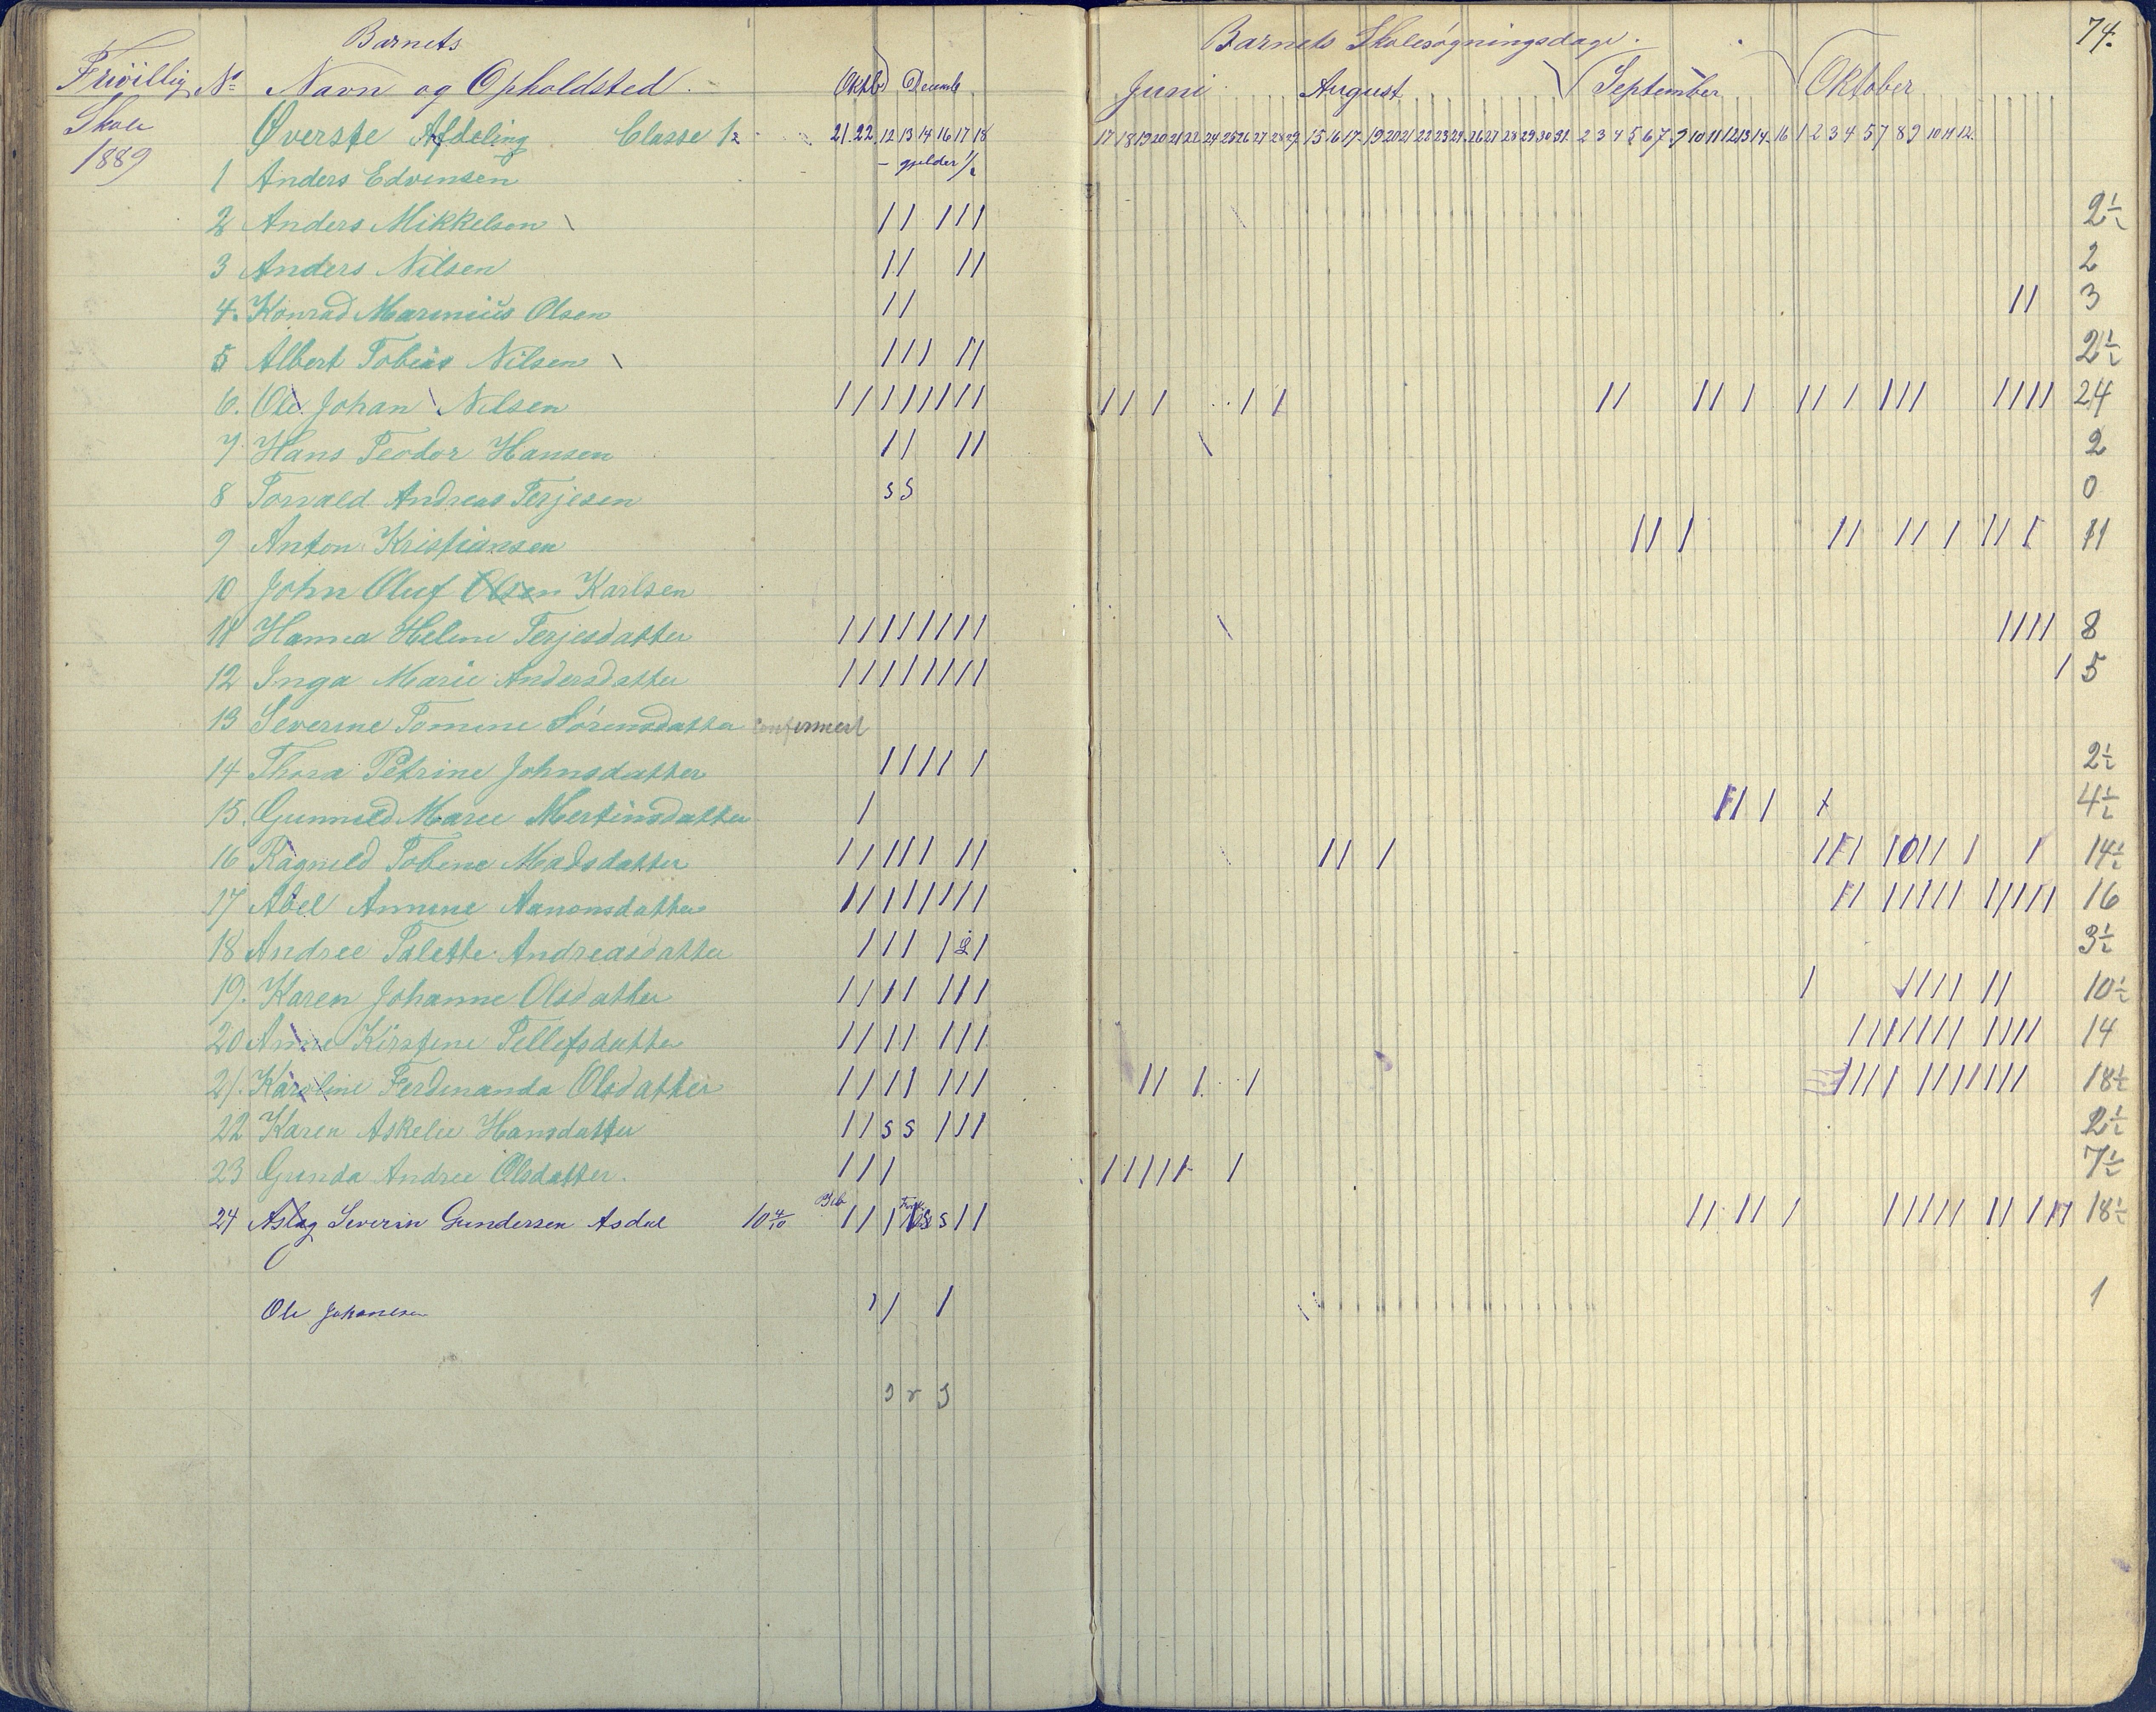 Barnets
Frivillig No Navn og Opholdsted. Oktb Decemb.
Skole
1889
Øverste Afdeling Classe 1 21. 22. 12 13 14 16 17 18
– gjelder 1/2
1 Anders Edvinsen
2 Anders Mikkelsen
3 Anders Nilsen
4. Konrad Marinius Olsen
5 Albert Tobias Nilsen
6. Ole Johan Nilsen
7 Hans Teodor Hansen
8 Torvald Andreas Terjesen s s
9 Anton Kristiansen
10 John Oluf Olsen Karlsen
11 Hanna Helene Terjesdatter
12 Inga Marie Andersdatter
13 Severine Tomine Sörensdatter confirmert
14 Thora Petrine Johnsdatter
15. Gunnild Marie Mertinsdatter
16 Ragnild Tobine Madsdatter
17 Abel Annine Aanonsdatter
18 Andree Talette Andreasdatter
19. Karen Johanne Olsdatter
20 Anne Kirstine Tellefsdatter
21. Karoline Ferdinanda Olsdatter
22 Karen Askelie Hansdatter s s
23 Gunda Andree Olsdatter.
24 Aslag Severin Gundersen Asdal 10 4/10
Ole Johanesen
3 r 3
74.
Barnets Skolesøgningsdage.
Juni August September Oktober
17 18 19 20 21 22 24 25 26 27 28 29 15 16 17 19 20 21 22 23 24 26 27 28 29 30 31 2 3 4 5 6 7 9 10 11 12 13 14 16 1 2 3 4 5 7 8 9 10 11 12
2 1/2
2
3
2 1/2
24
2
0
11
8
5
2 1/2
4 1/2
14 1/2
16
3 1/2
10 1/2
14
18 1/2
2 1/2
7 1/2
18 1/2
1